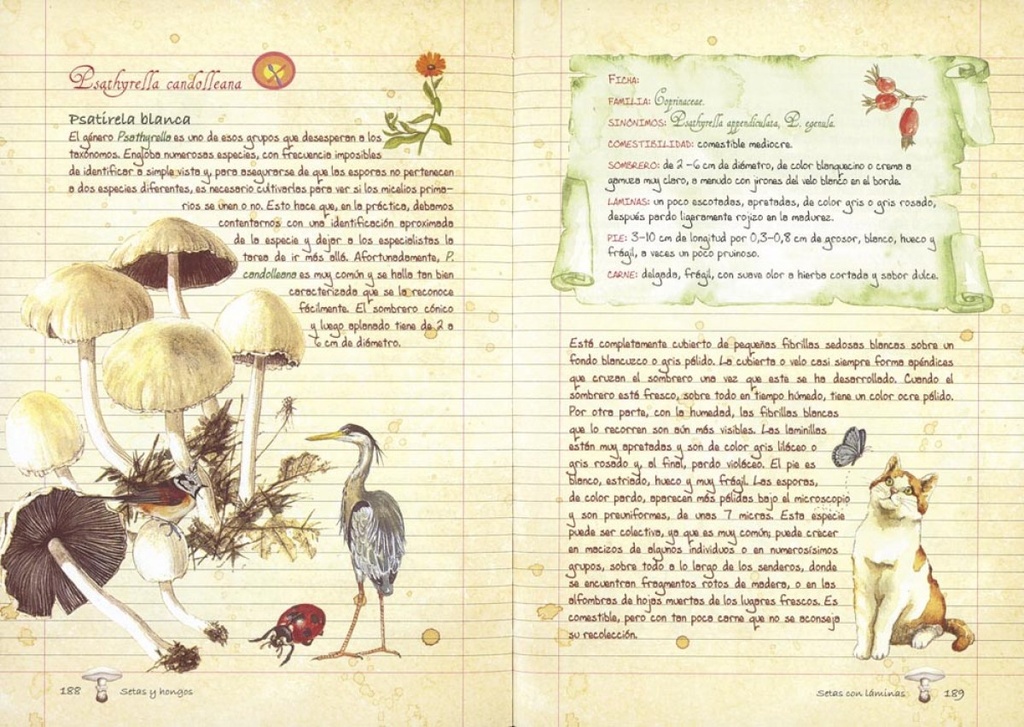 Psathyrella candolleana
Psatirela blanca
El género Psathyrella es uno de esos grupos que desesperan a los
taxónomos. Engloba numerosas especies, con frecuencia imposibles
de identificar a simple vista y, para asegurarse de que las esporas no pertenecen
a dos especies diferentes, es necesario cultivarlas para ver si los micelios prima-
rios se unen o no. Esto hace que, en la práctica, debamos
contentarnos con una identificación aproximada
de la especie y dejar a los especialistas la
tarea de ir más allá. Afortunadamente, P.
candolleana es muy común y se halla tan bien
caracterizada que se la reconoce
fácilmente. El sombrero cónico
y luego aplanado tiene de 2 a
6 cm de diámetro.
188 Setas y hongos
FICHA:
FAMILIA: Coprinaceae.
SINÓNIMOS: Psathyrella appendiculata, P. egenula.
COMESTIBILIDAD: comestible mediocre.
SOMBRERO: de 2 -6 cm de diámetro, de color blanquecino o crema a
gamuza muy claro, a menudo con jirones del velo blanco en el borde.
LÁMINAS: un poco escotadas, apretadas, de color gris o gris rosado,
después pardo ligeramente rojizo en la madurez.
PIE: 3-10 cm de longitud por 0,3-0,8 cm de grosor, blanco, hueco y
frágil, a veces un poco pruinoso.
CARNE: delgada, frágil, con suave olor a hierba cortada y sabor dulce.
Está completamente cubierto de pequeñas fibrillas sedosas blancas sobre un
fondo blancuzco o gris pálido. La cubierta o velo casi siempre forma apéndices
que cruzan el sombrero una vez que este se ha desarrollado. Cuando el
sombrero está fresco, sobre todo en tiempo húmedo, tiene un color ocre pálido.
Por otra parte, con la humedad, las fibrillas blancas
que lo recorren son aún más visibles. Las laminillas
están muy apretadas y son de color gris liláceo o
gris rosado y, al final, pardo violáceo. El pie es
blanco, estriado, hueco y muy frágil. Las esporas,
de color pardo, aparecen más pálidas bajo el microscopio
y son preuniformes, de unas 7 micras. Esta especie
puede ser colectiva, ya que es muy común; puede crecer
en macizos de algunos individuos o en numerosísimos
grupos, sobre todo a lo largo de los senderos, donde
se encuentran fragmentos rotos de madera, o en las
alfombras de hojas muertas de los lugares frescos. Es
comestible, pero con tan poca carne que no se aconseja
su recolección.
Setas con láminas 189